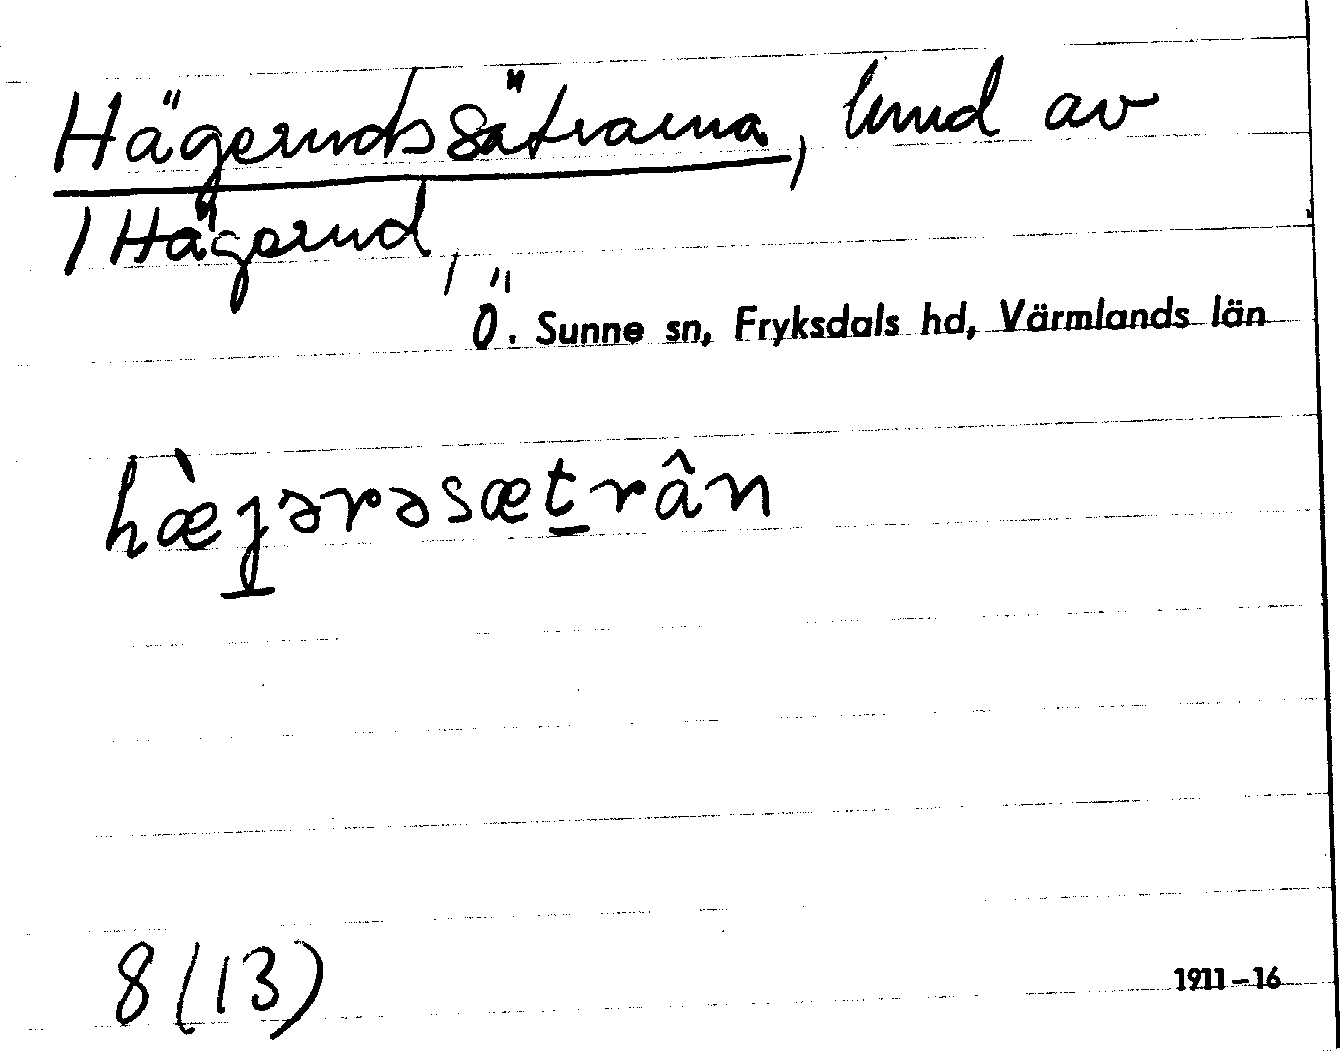 Hägerudssätrarna, hmd av
1 Hägerud,
Ö. Sunne sn, Fryksdals hd, Värmlands län
hæ̀j̱ərəsæṯrân
8 (13)
1911–16